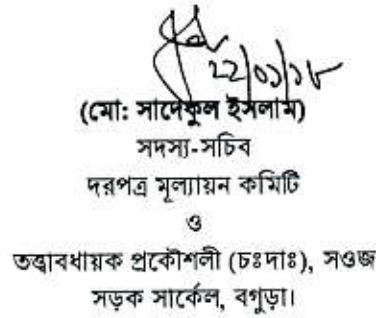 ২২/০১/১৮
(মো: সাদেকুল ইসলাম)
সদস্য-সচিব
দরপত্র মূল্যায়ন কমিটি
ও
তত্ত্বাবধায়ক প্রকৌশলী (চঃদাঃ), সওজ
সড়ক সার্কেল, বগুড়া।